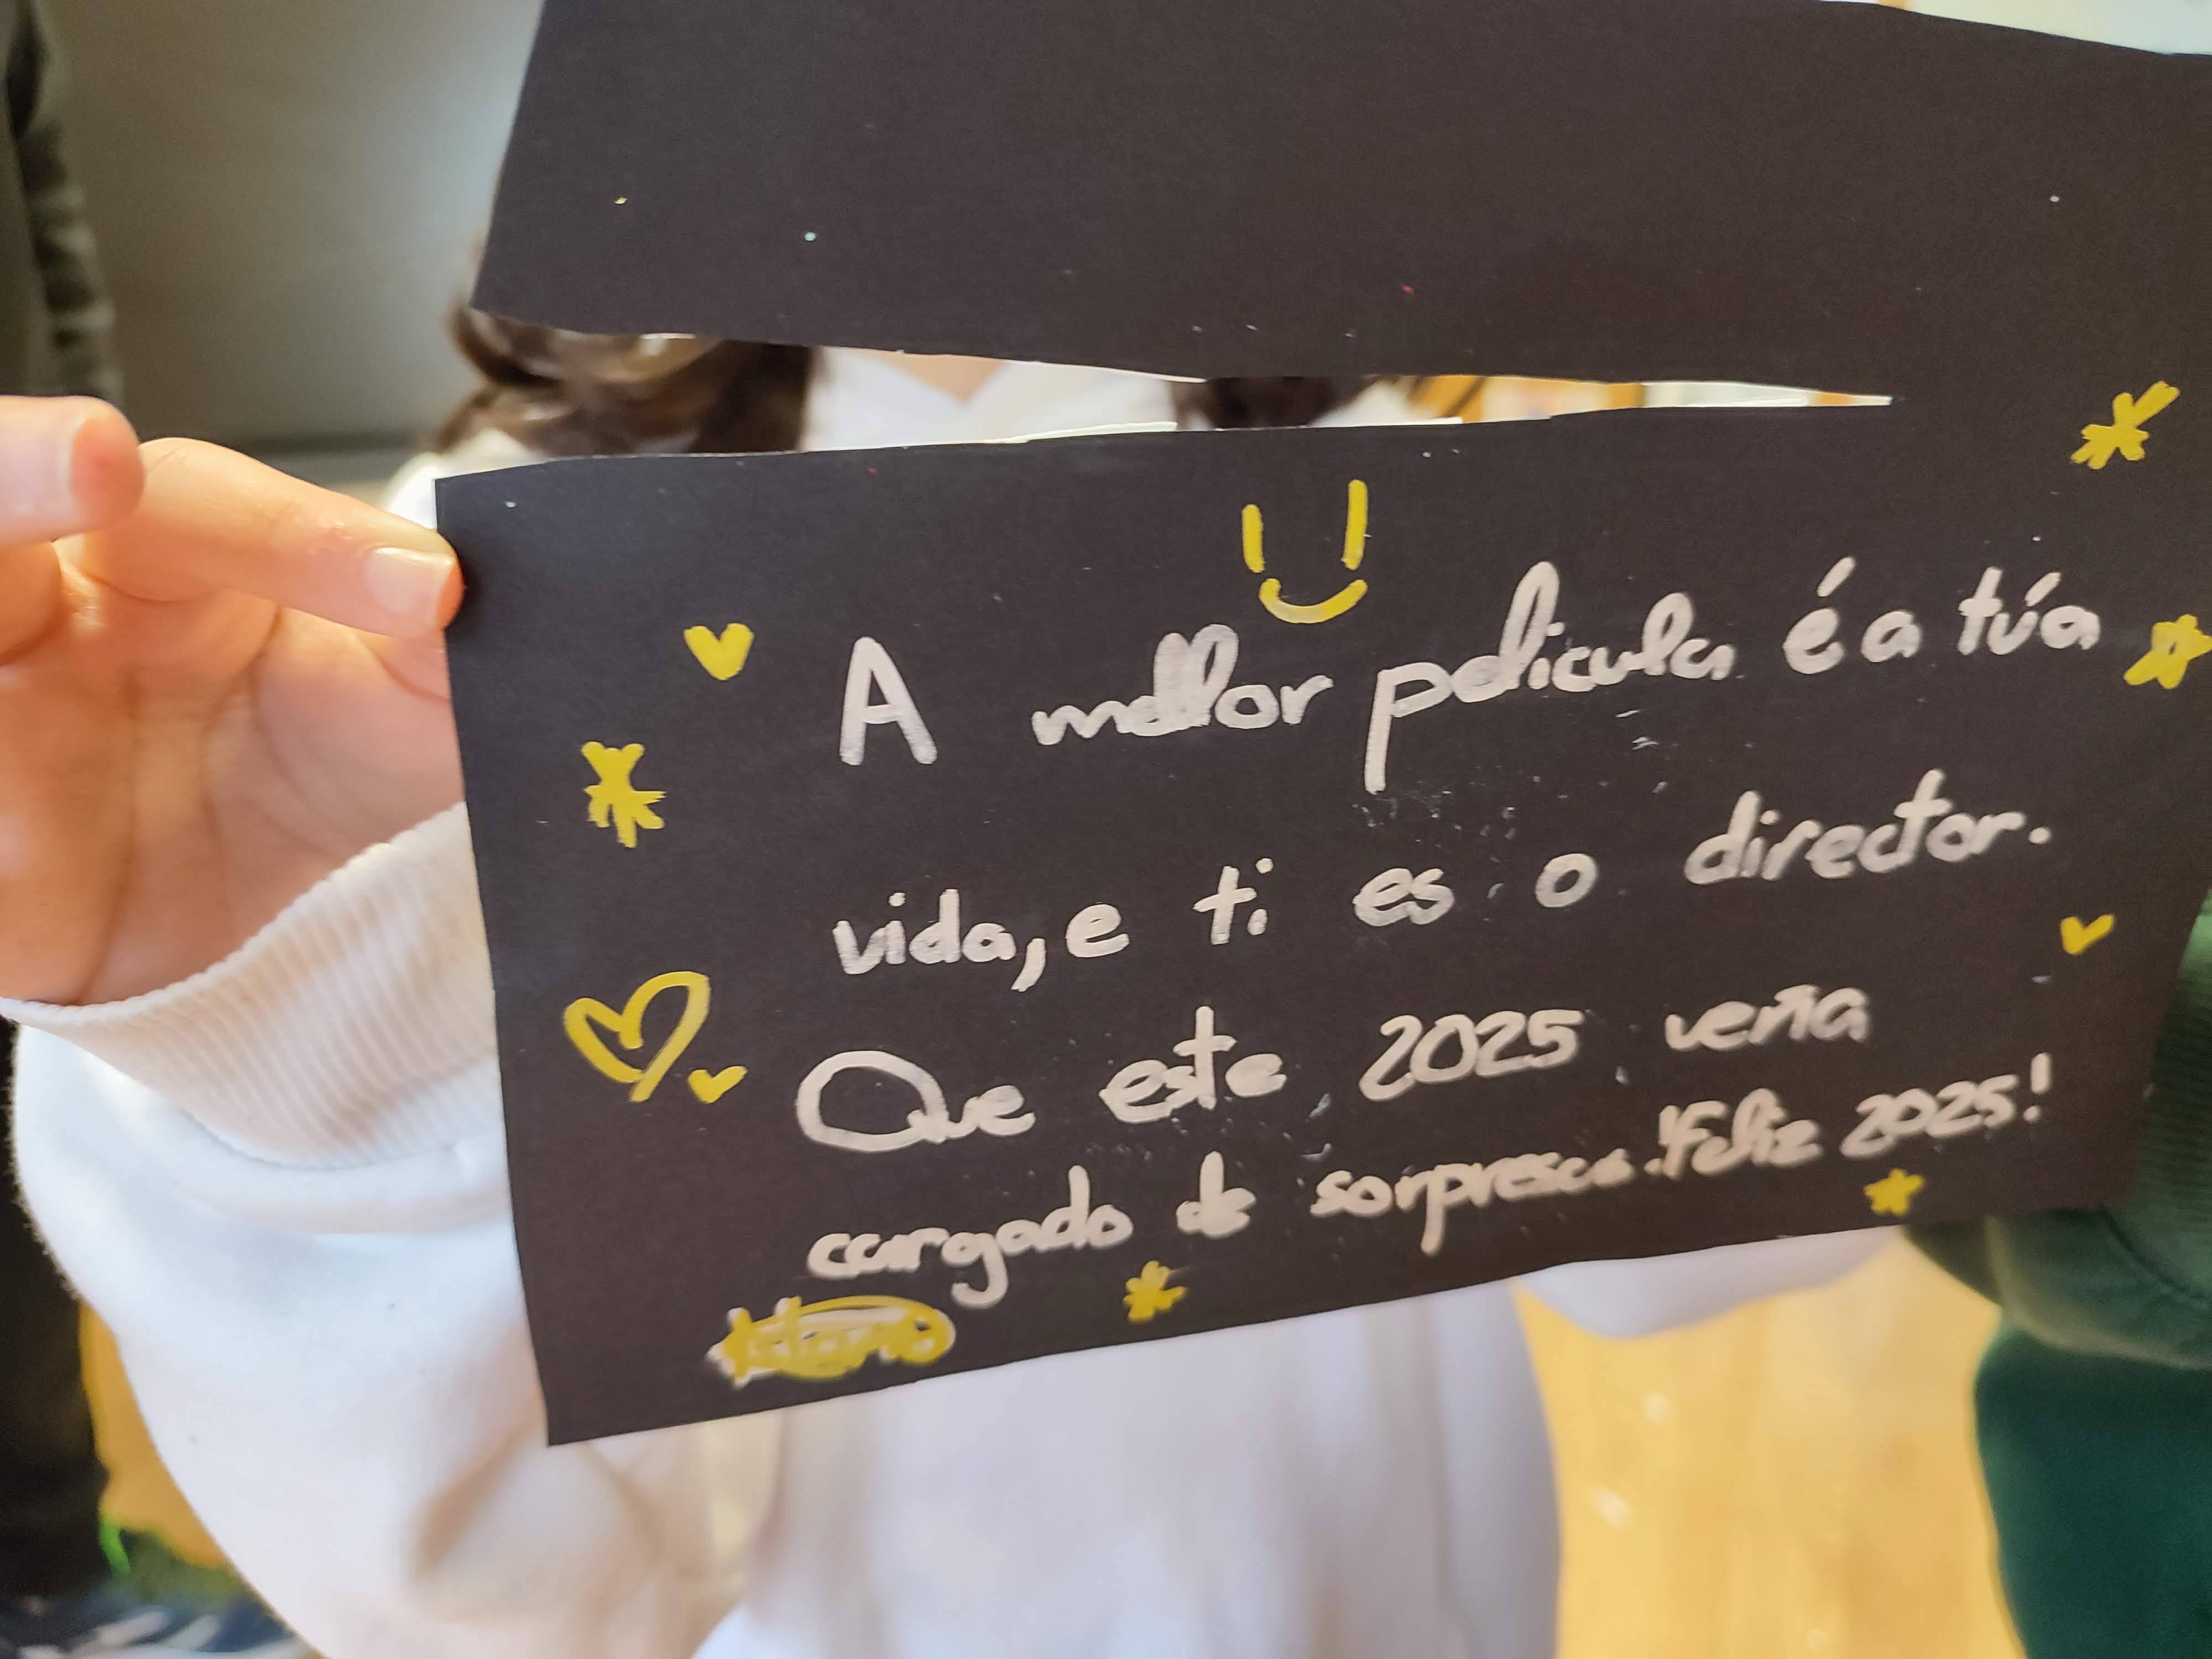 A mellor pelicula é a túa
vida, e ti es o director.
Que este 2025 veña
cargado de sorpresas. !Feliz 2025!